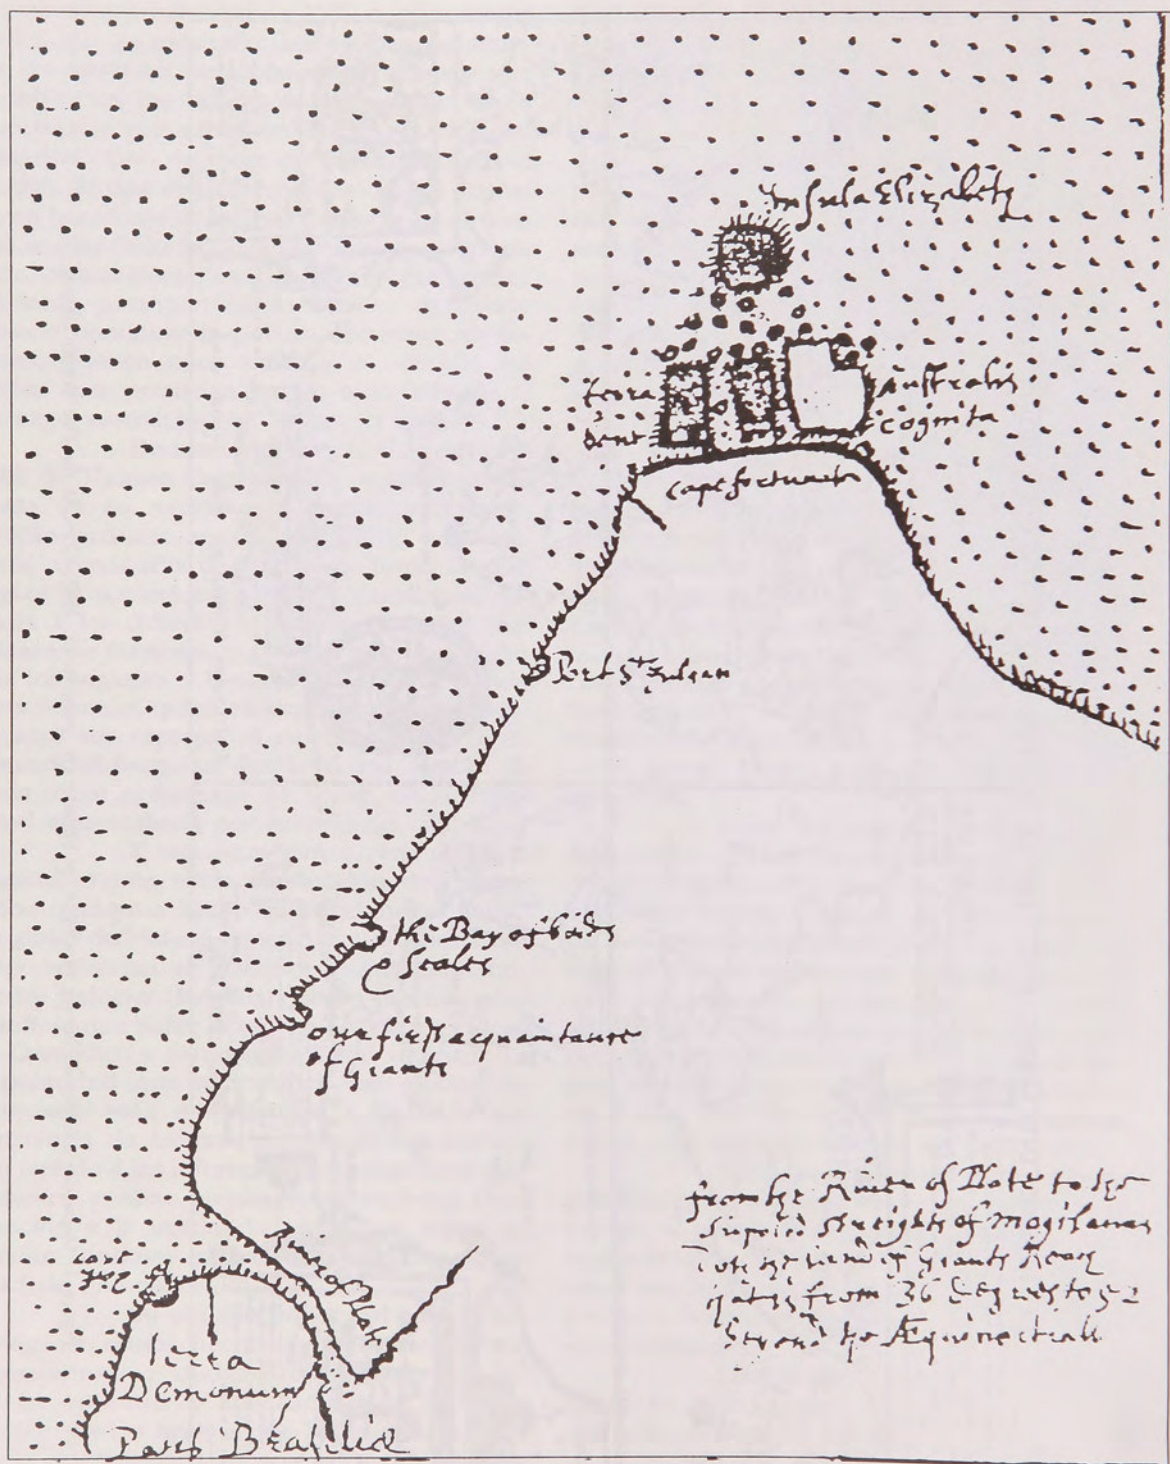 Insula Elizabetħ
terra australis
bene cognita
cape fortunate
Port St Julian
the Bay of birds
& Seales
our first acquaintance
of Giants
River of Plate
cape
Terra
Demonum
Pars Brasiliæ
from the River of Plate to the
Suposed streights of Mogilanas
Giants Reach
from 36 degrees to 52
beyond the Æquinoctiall